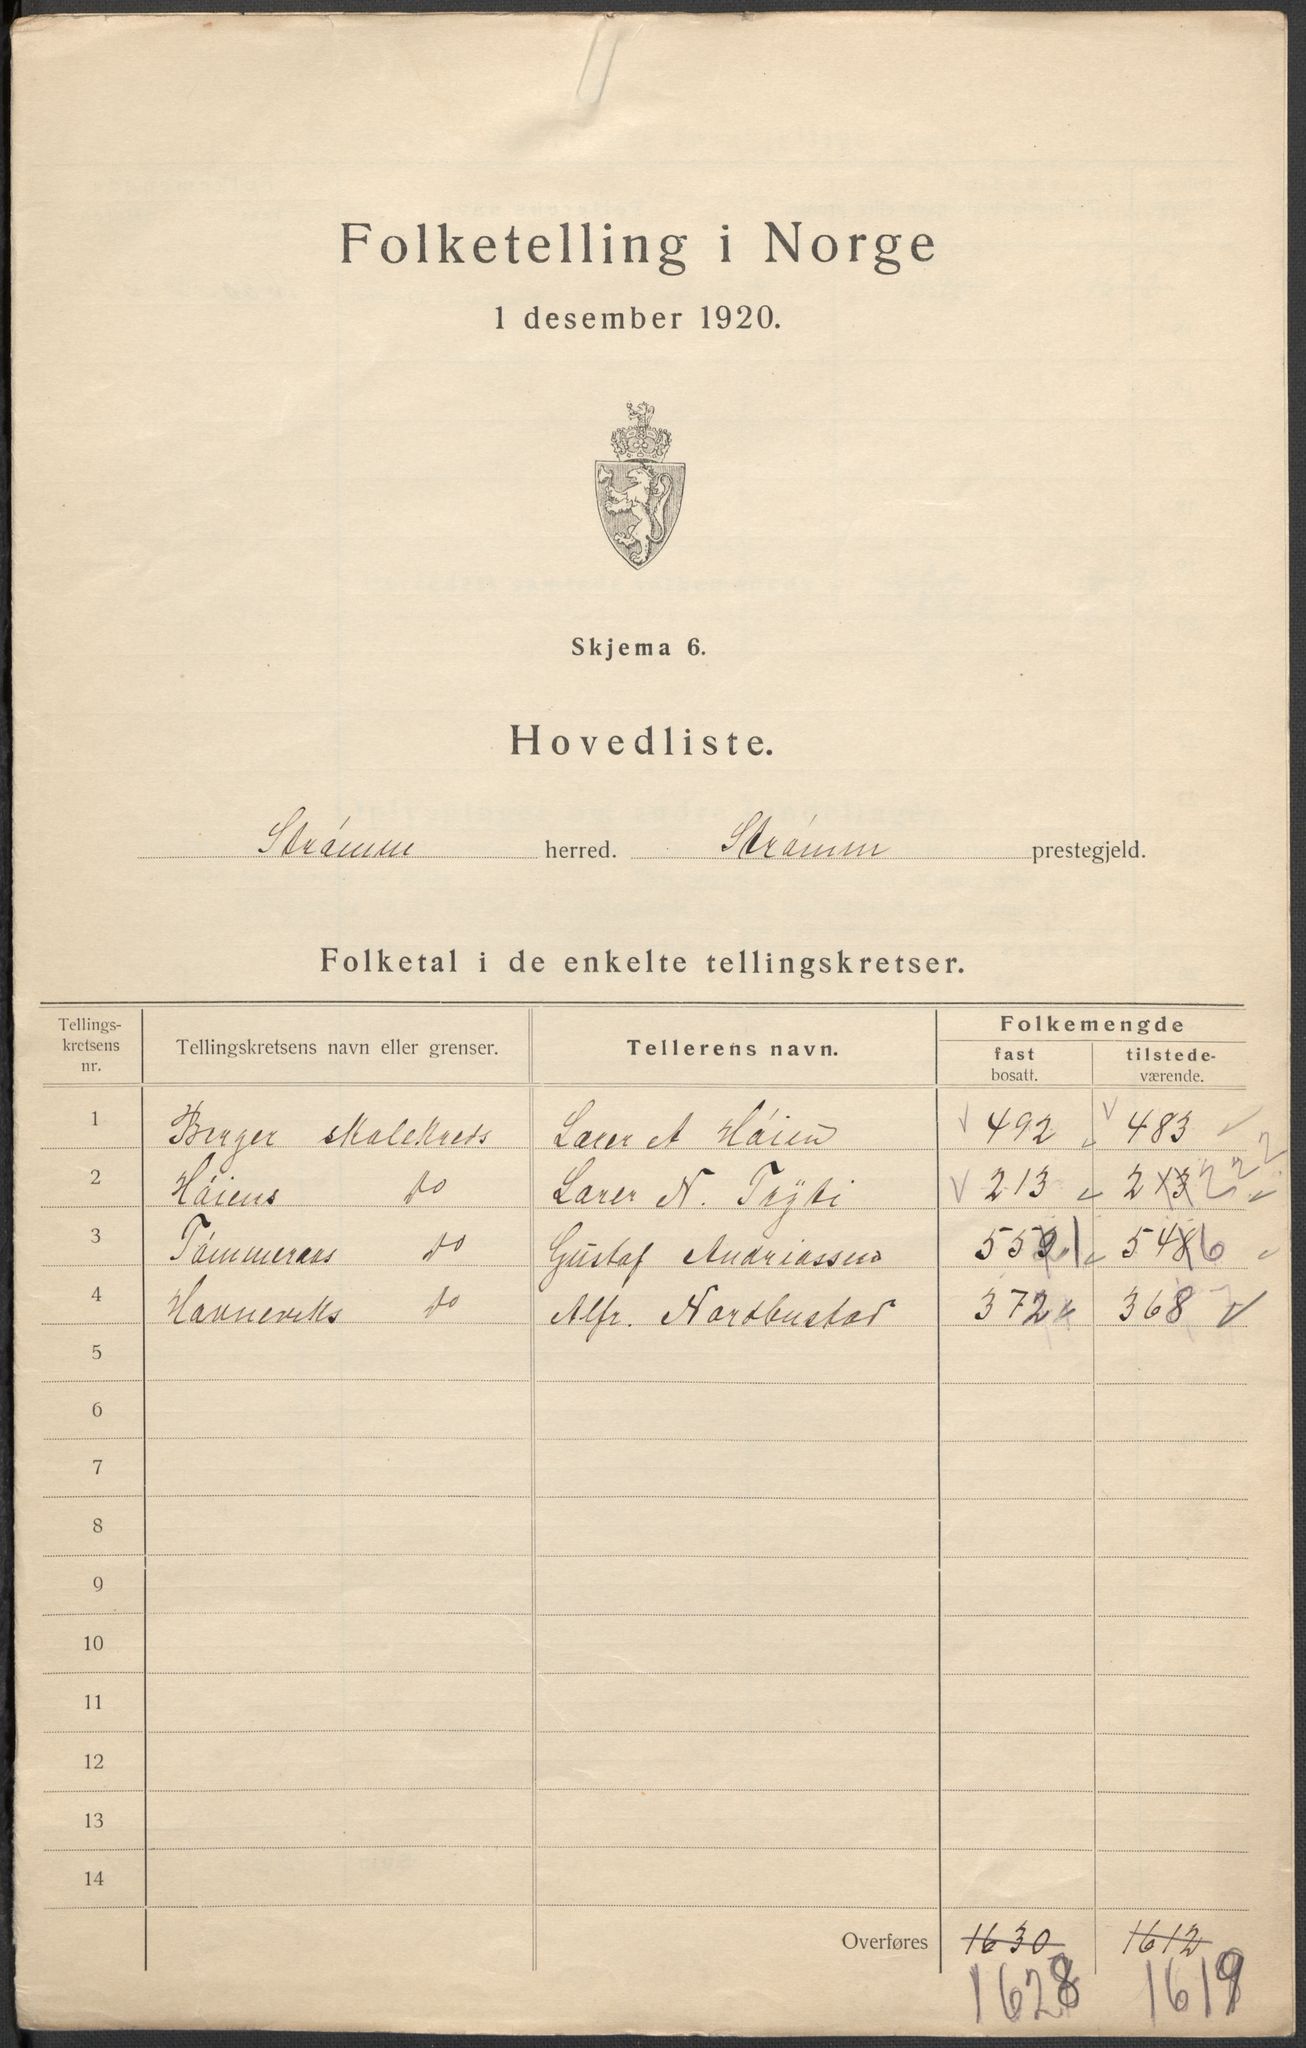 Folketelling i Norge
1 desember 1920.
Skjema 6.
Hovedliste.
Strømm herred. Strømm prestegjeld.
Folketal i de enkelte tellingskretser.
Tellings-kretsens nr. Tellingskretsens navn eller grenser. Tellerens navn. Folkemengde
fast bosatt. tilstede-værende.
1 Berger skolekreds Lærer A Høien 492 483
2 Høiens do Lærer N. Trýti 213 213 222
3 Tømmeraas do Gustaf Andriassen 553 1 548 6
4 Havneviks do Alfr. Nordbustad 372 368
5
6
7
8
9
10
11
12
13
14
Overføres 1630 1612
1628 1619